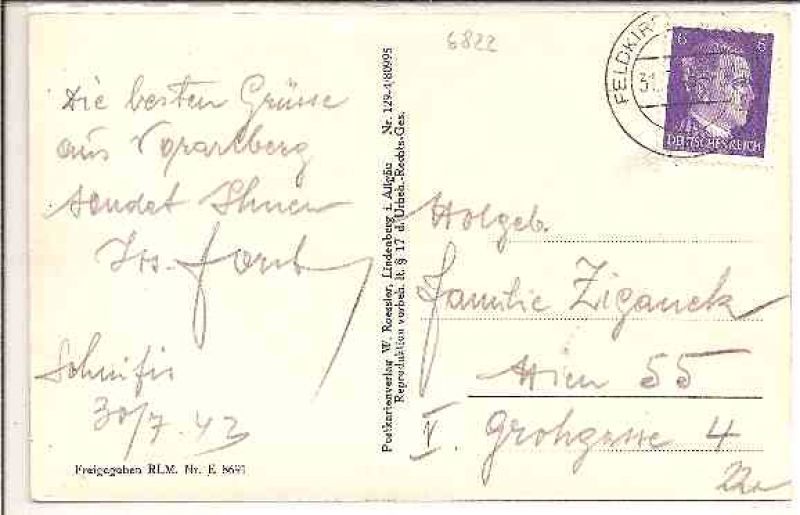 6822
Die besten Grüsse
aus Vorarlberg
sendet Ihnen
Schnifis
30/7.43
Freigegeben RLM. Nr. E 8691
Postkartenverlag W. Roessler, Lindenberg i. Allgäu Nr. 129-4/80995
Reproduktion vorbeh. lt. § 17 d. Urheb.-Rechts-Ges.
FELDKIRCH
31.
6 6
DEUTSCHES REICH
Familie Ziganek
Wien 55
V. Grohgasse 4